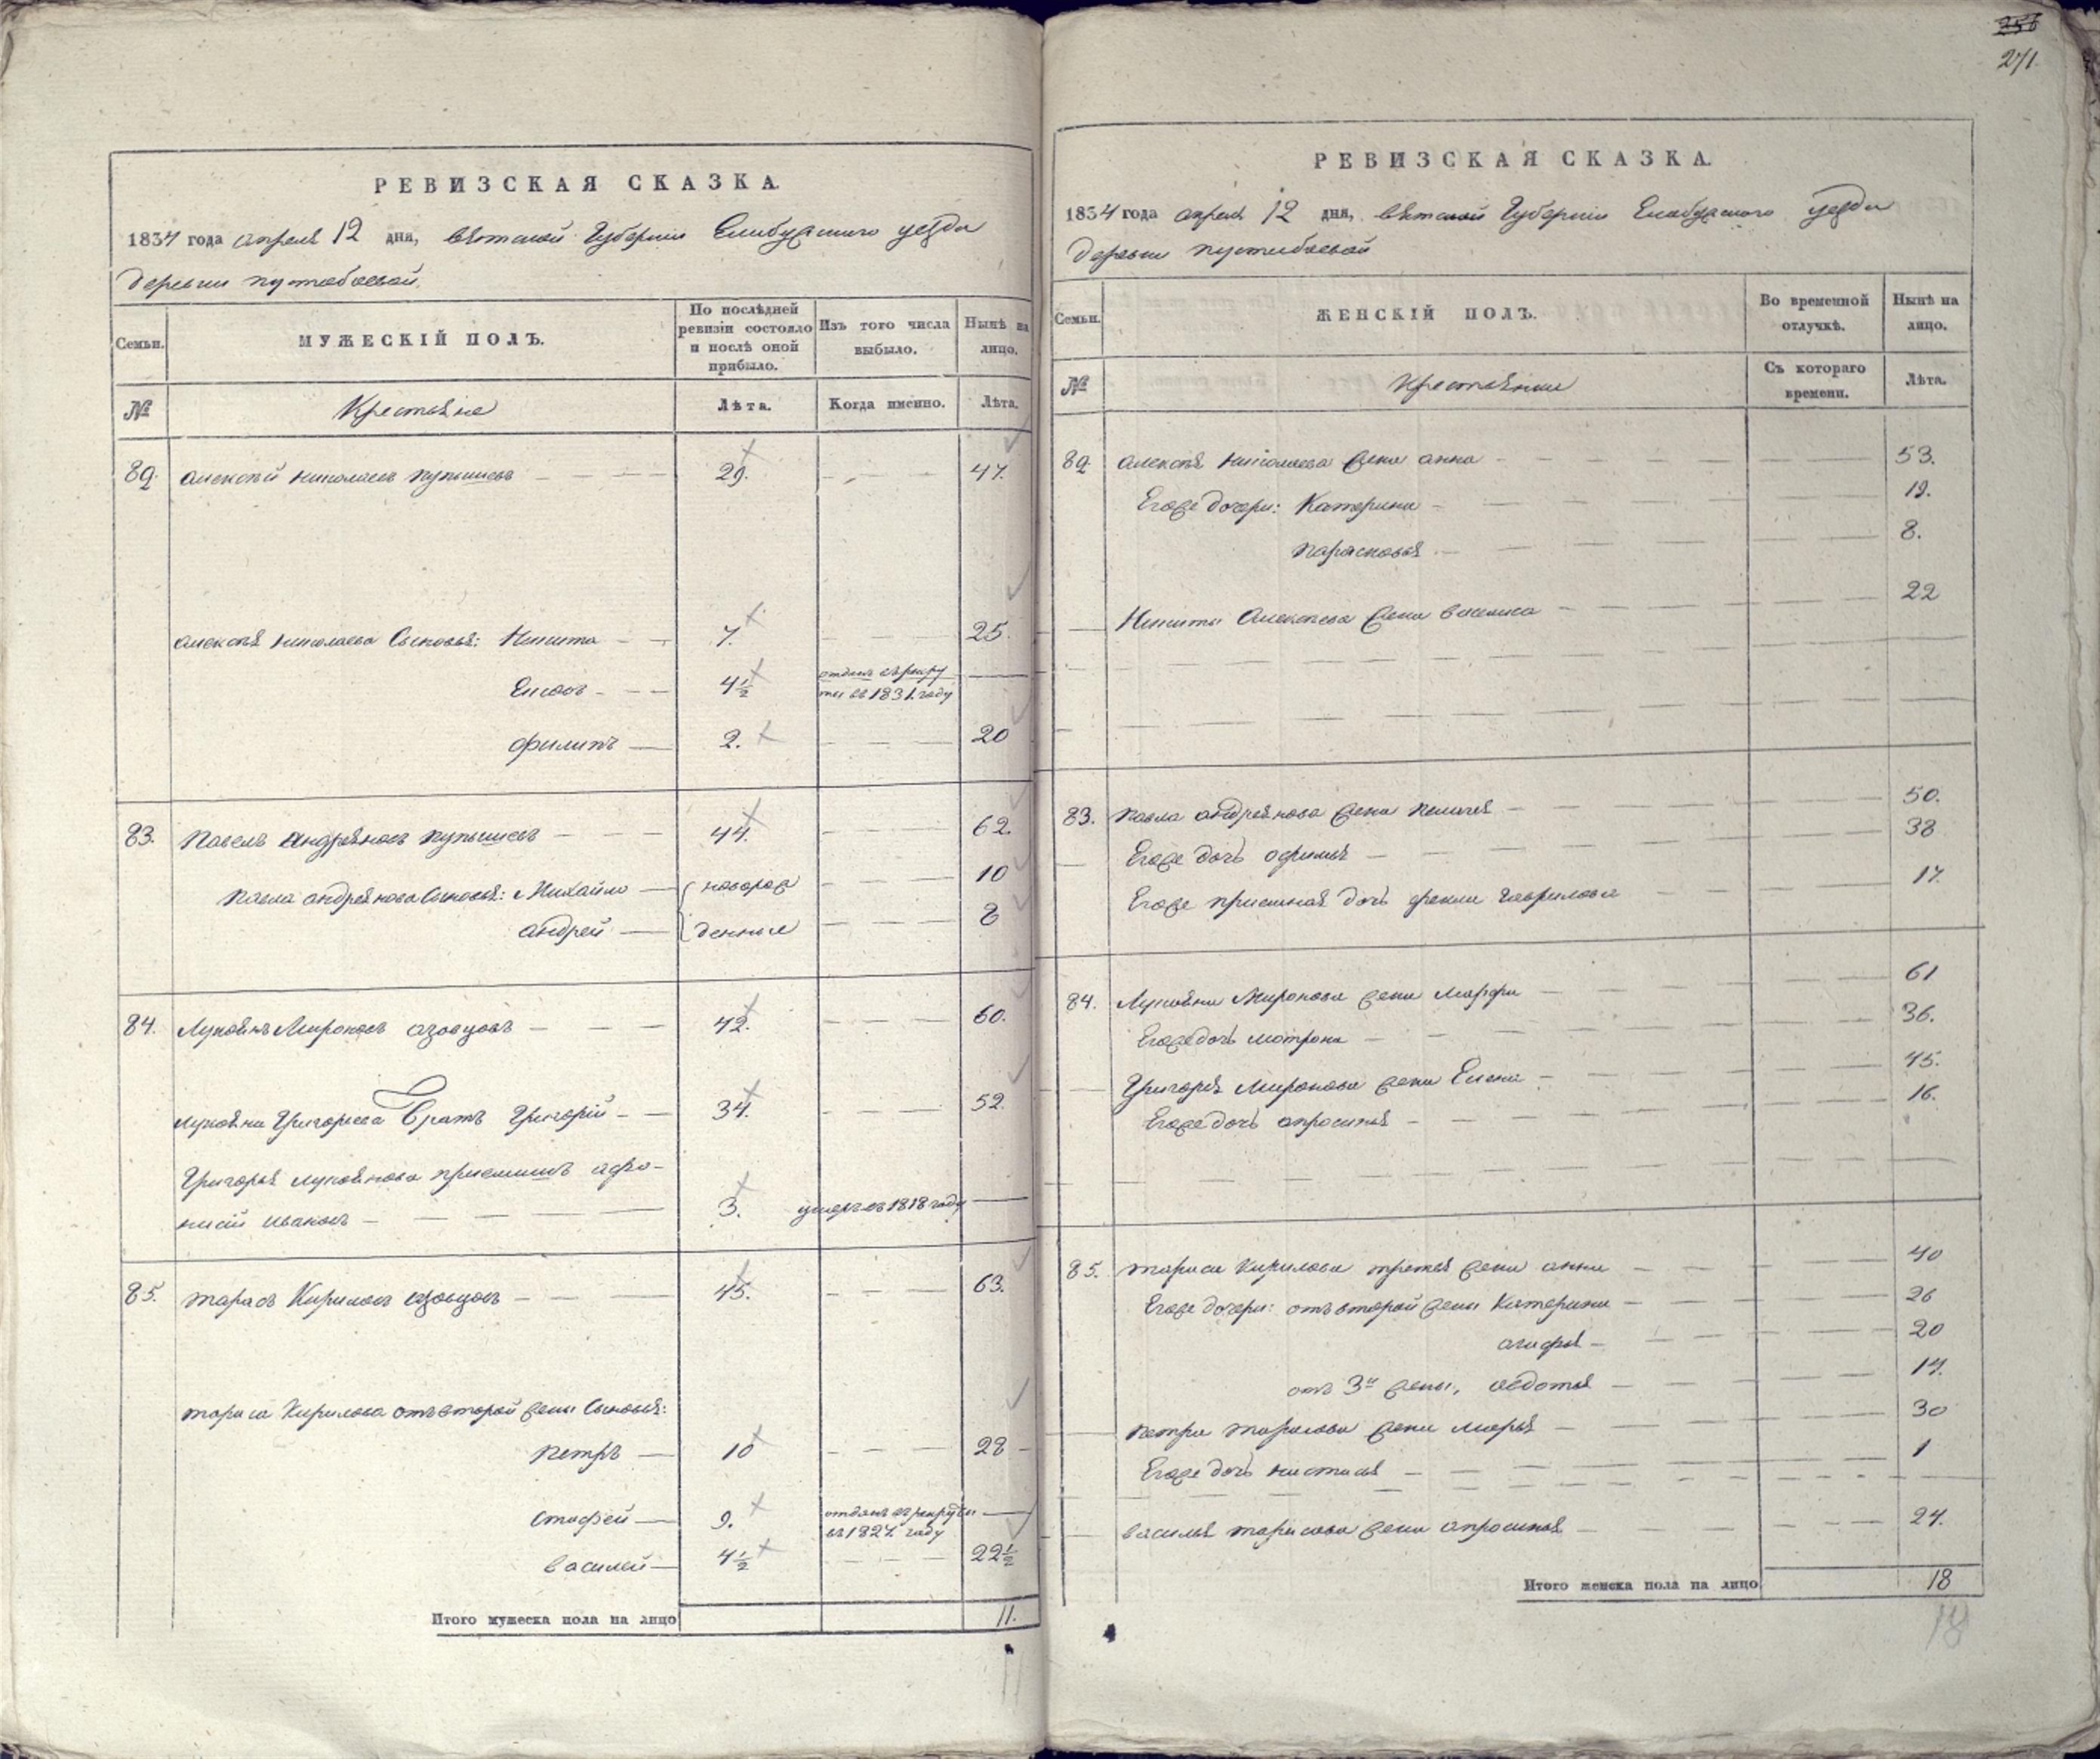 РЕВИЗСКАЯ СКАЗКА.
1834 года апреля 12 дня, вятской Губернии Елабужского уезда
деревни пустобаевой.
Семьи. МУЖЕСКІЙ ПОЛЪ. По послѣдней ревизіи состояло и послѣ оной прибыло. Изъ того числа выбыло. Нынѣ на лицо.
№ Крестьяне Лѣта. Когда именно. Лѣта.
82. алексѣй николаевъ 29. 47.
алексѣя николаева Сыновья: Никита 7. 25.
4½ отданъ въ рекруты въ 1831. году
филипъ 2. 20
83. Павелъ андреяновъ 44. 62.
Павла андреянова Сыновья: Михайло новорож 10
андрей денные 8
84. Лукоянъ Мироновъ азовцовъ 42. 60.
Лукояна Григорьева Братъ Григорій 34. 52.
Григорья лукоянова приемышъ афо-
насій ивановъ 3. умеръ въ 1818 году
85. тарасъ Кириловъ азовцовъ 45. 63.
тараса Кирилова отъ второй жены Сыновья:
петръ 10 28
стафей 9. отданъ въ рекруты въ 1827. году
василей 4½ 22½
Итого мужеска пола на лицо 11.
256
271
РЕВИЗСКАЯ СКАЗКА.
1834 года апреля 12 дня, вятской Губернии Елабужского уезда
деревни пустобаевой
Семьи. ЖЕНСКІЙ ПОЛЪ. Во временной отлучкѣ. Нынѣ на лицо.
№ Крестьянки Съ котораго времени. Лѣта.
82. алексѣя николаева жена анна 53.
Егоже дочери: Катерина 19.
парасковья 8.
Никиты Алексѣева жена 22
83. павла андреянова жена пелагея 50.
Егоже дочь офимья 38
Егоже приемная дочь Гаврилова 17.
84. Лукояна Миронова жена Марфа 61
Егоже дочь матрона 36.
Григорья Миронова жена Елена 45.
Егоже дочь апросинья 16.
85. тараса Кирилова третья жена анна 40
Егоже дочери: отъ второй жены Катерина 26
агафья 20
отъ 3й жены, авдотья 14.
петра тарасова жена марья 30
Егоже дочь настасья 1
василья тарасова жена апросинья 24.
Итого женска пола на лицо 18
18